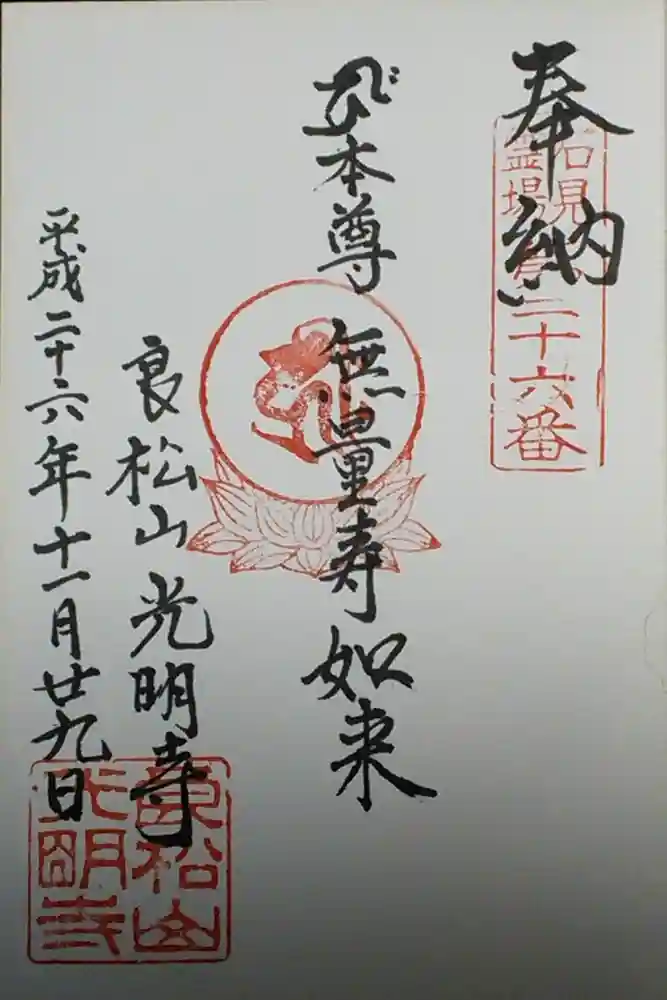 奉納
石見
霊場第二十六番
本尊 無量寿如来
良松山 光明寺
平成二十六年十一月廿九日
良松山
光明寺